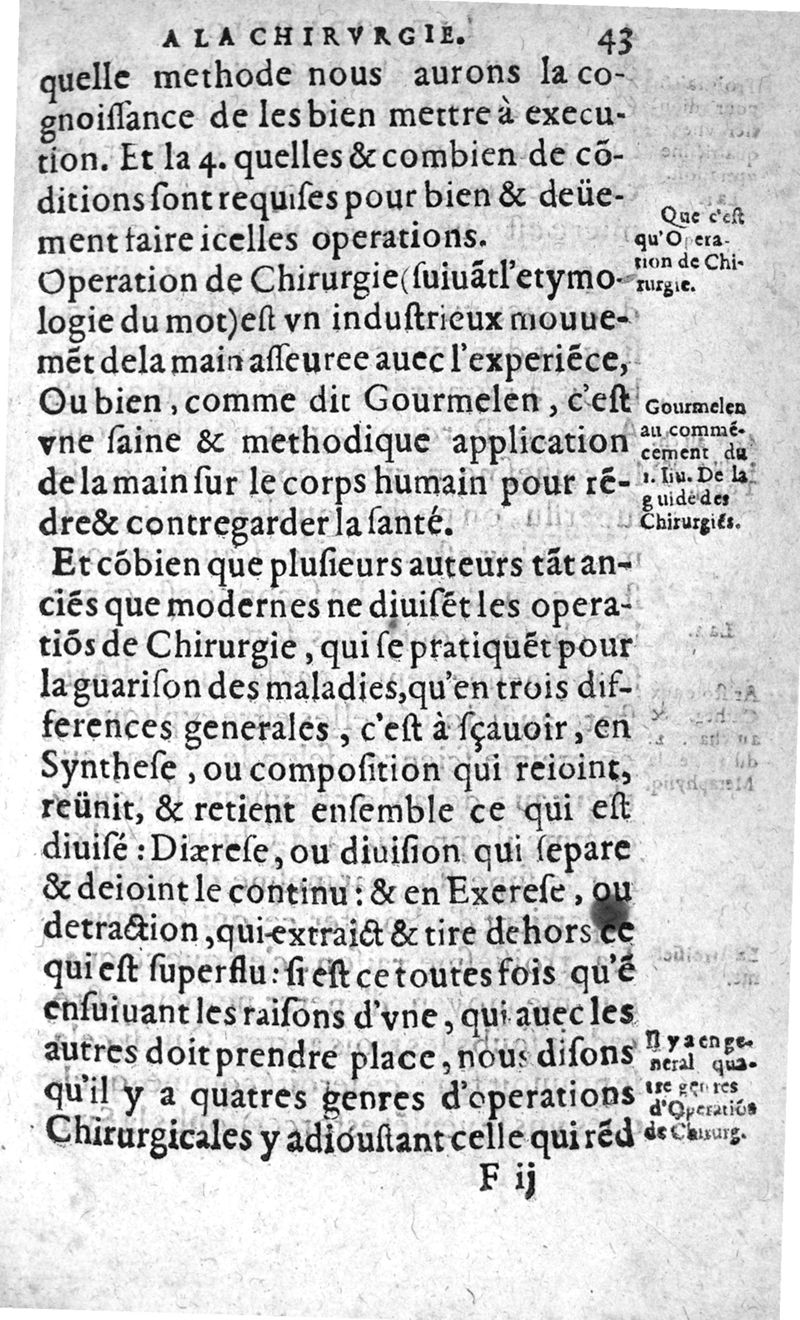 A LA CHIRVRGIE. 43
quelle methode nous aurons la co-
gnoiſſance de les bien mettre à execu-
tion. Et la 4. quelles & combien de cõ-
ditions ſont requiſes pour bien & deüe-
ment faire icelles operations.
Operation de Chirurgie (ſuiuãt l'etymo-
logie du mot) eſt vn induſtrieux mouue-
mẽt de la main aſſeuree auec l'experiẽce,
Ou bien, comme dit Gourmelen, c'eſt
vne ſaine & methodique application
de la main ſur le corps humain pour rẽ-
dre & contregarder la ſanté.
Et cõbien que pluſieurs auteurs tãt an-
ciẽs que modernes ne diuiſẽt les opera-
tiõs de Chirurgie, qui ſe pratiquẽt pour
la guariſon des maladies, qu'en trois dif-
ferences generales, c'eſt à ſçauoir, en
Syntheſe, ou compoſition qui reioint,
reünit, & retient enſemble ce qui eſt
diuiſé : Diæreſe, ou diuiſion qui ſepare
& deioint le continu : & en Exereſe, ou
detraction, qui extraict & tire dehors ce
qui eſt ſuperflu : ſi eſt ce toutes fois qu'ẽ
enſuiuant les raiſons d'vne, qui auec les
autres doit prendre place, nous diſons
qu'il y a quatres genres d'operations
Chirurgicales y adiouſtant celle qui rẽd
F ij
Que c'eſt
qu'Opera-
tion de Chi-
rurgie.
Gourmelen
au commẽ-
cement du
1. liu. De la
guide des
Chirurgiẽs.
Il y a en ge-
neral qua-
tre genres
d'Operatiõs
de Chirurg.